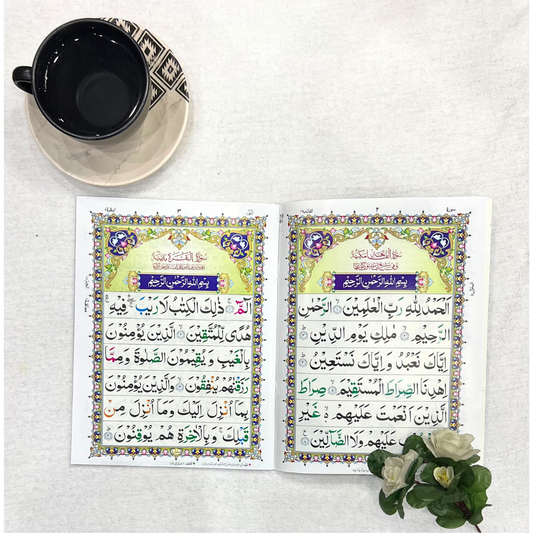 سورة
٢
بِسْمِ اللهِ الرَّحْمٰنِ الرَّحِيْمِ
اَلْحَمْدُ لِلّٰهِ رَبِّ الْعٰلَمِيْنَ ۝ الرَّحْمٰنِ
الرَّحِيْمِ ۝ مٰلِكِ يَوْمِ الدِّيْنِ ۝
اِيَّاكَ نَعْبُدُ وَ اِيَّاكَ نَسْتَعِيْنُ ۝
اِهْدِنَا الصِّرَاطَ الْمُسْتَقِيْمَ ۝ صِرَاطَ
الَّذِيْنَ اَنْعَمْتَ عَلَيْهِمْ ۝ غَيْرِ
عَلَيْهِمْ وَلَا الضَّآلِّيْنَ ۝
البقرة
٣
بِسْمِ اللهِ الرَّحْمٰنِ الرَّحِيْمِ
الٓمّٓ ۝ ذٰلِكَ الْكِتٰبُ لَا رَيْبَ فِيْهِ
هُدًى لِّلْمُتَّقِيْنَ ۝ الَّذِيْنَ يُؤْمِنُوْنَ
بِالْغَيْبِ وَ يُقِيْمُوْنَ الصَّلٰوةَ وَ مِمَّا
رَزَقْنٰهُمْ يُنْفِقُوْنَ ۝ وَالَّذِيْنَ يُؤْمِنُوْنَ
بِمَآ اُنْزِلَ اِلَيْكَ وَ مَآ اُنْزِلَ مِنْ
قَبْلِكَ وَ بِالْاٰخِرَةِ هُمْ يُوْقِنُوْنَ ۝